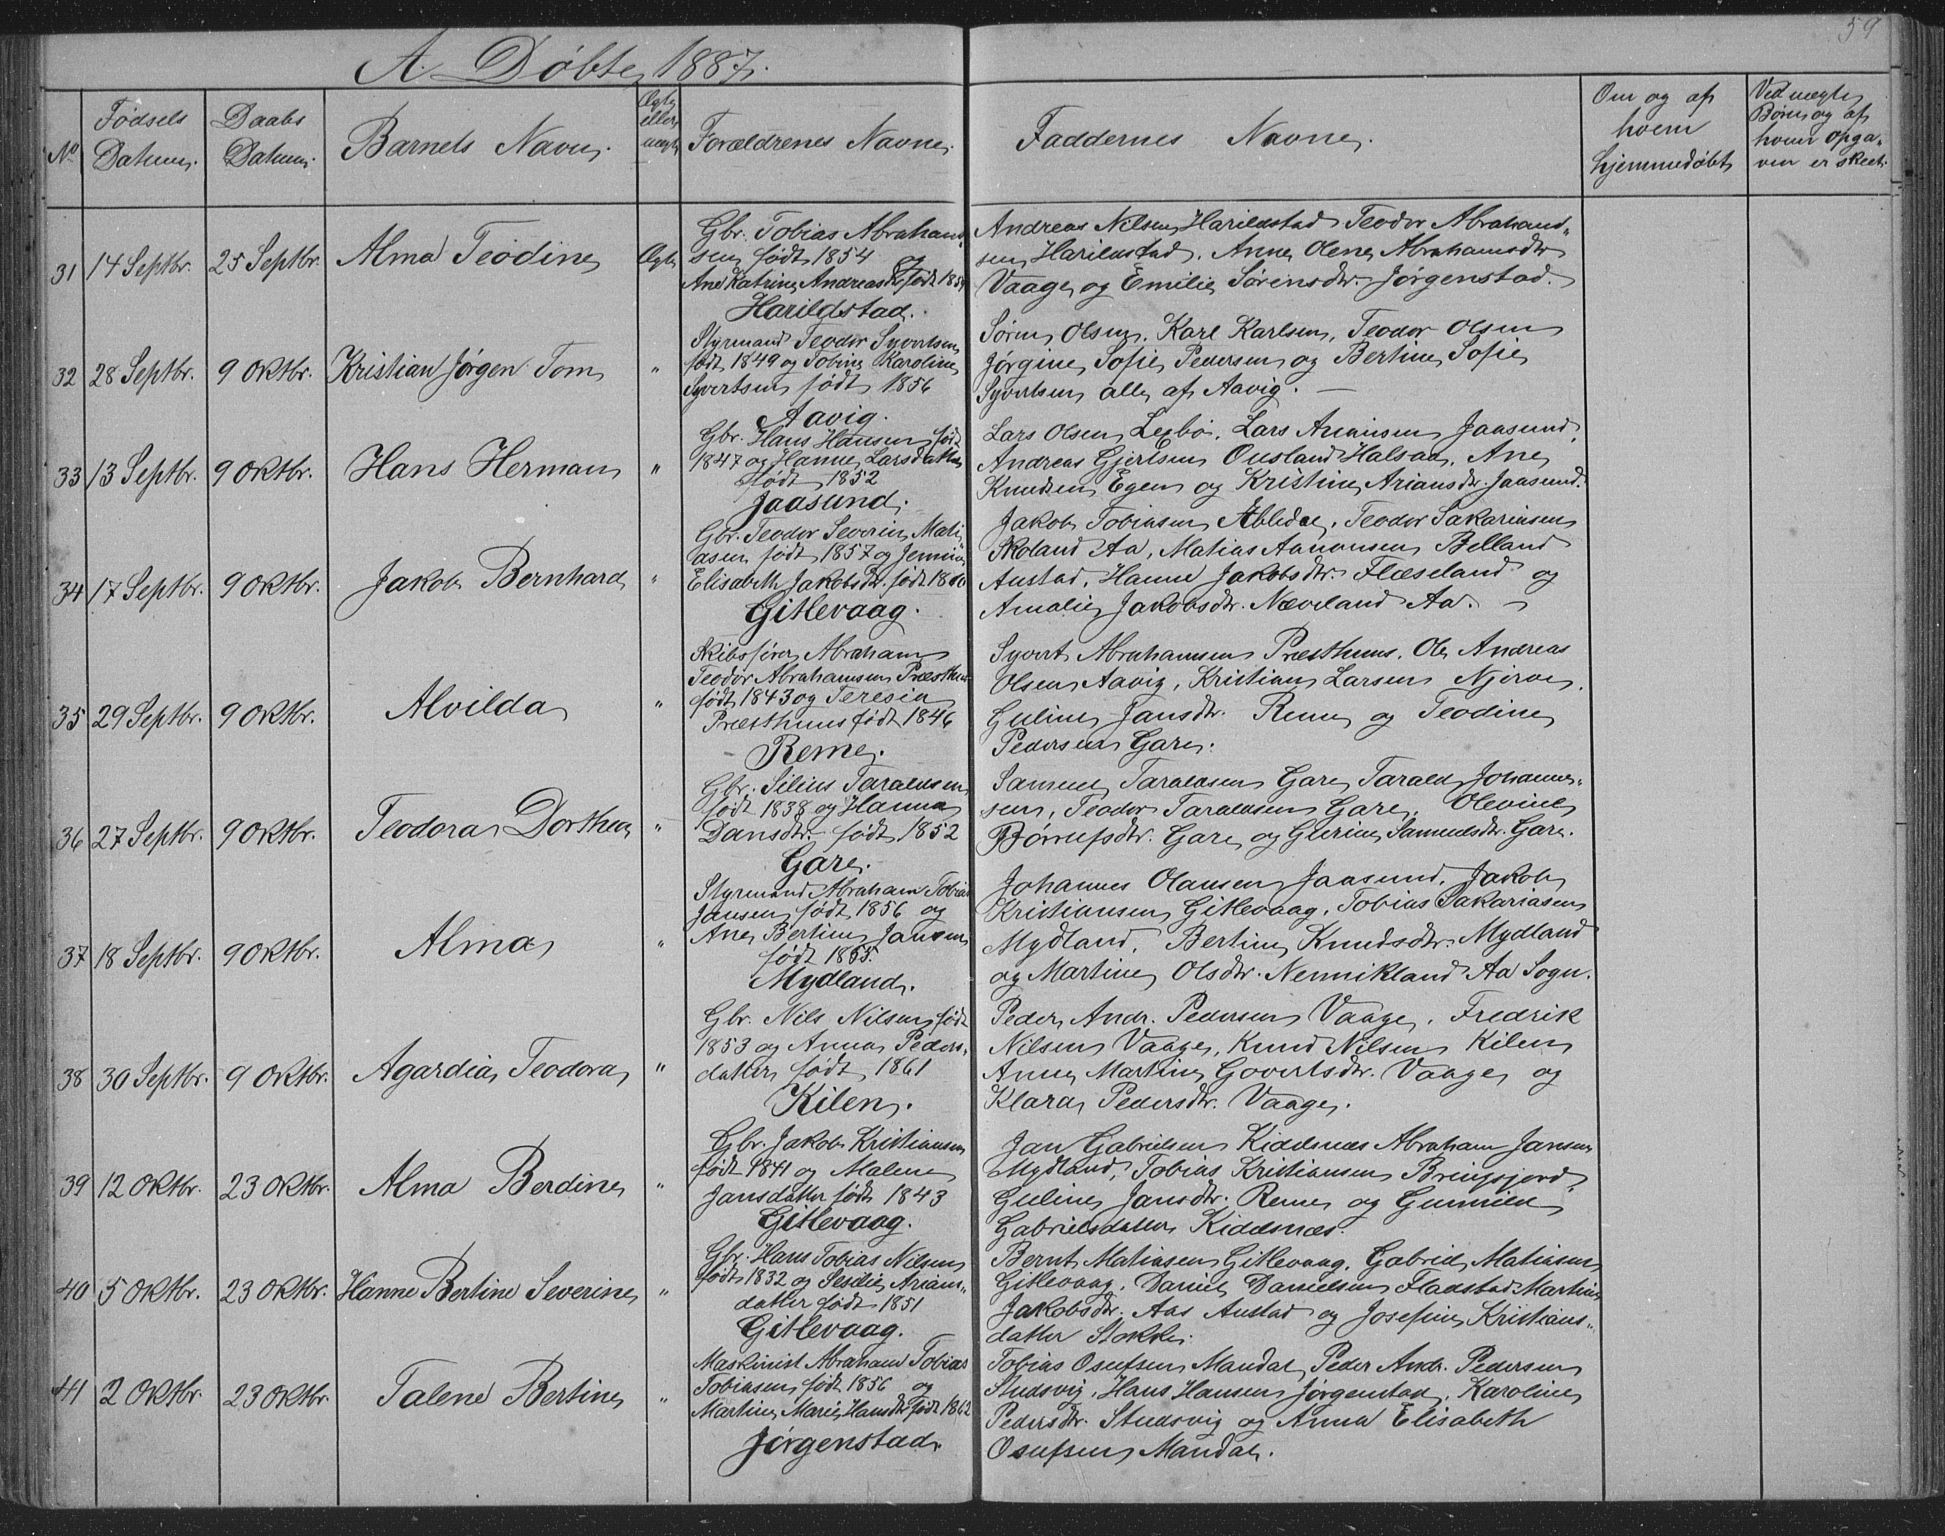 59
A. Døbte 1887.
No
Fødsels Datum.
Daabs Datum.
Barnets Navn.
Ægte eller uægte
Forældrenes Navne.
Faddernes Navne.
Om og af hvem hjemmedøbt
Ved uægte Børn og af hvem opgaven er skeet.
31 14 Septbr. 25 Septbr. Alma Teodine Ægte
Gbr. Tobias Abraham-
sen født 1854 og
Ane Katrine Andreasdtr. født 1859
Harildstad.
Andreas Nilsen Harildstad Teodor Abraham-
sen Harildstad. Anne Olene Abrahamsdtr
Vaage og Emilie Sørensdtr. Jørgenstad.
32 28 Septbr. 9 Oktbr. Kristian Jørgen Tom "
Styrmand Teodor Syvertsen
født 1849 og Tobine Karoline
Syvertsen født 1856
Aavig.
Søren Olsen, Karl Karlsen, Teodor Olsen
Jørgine Sofie Pedersen og Bertine Sofie
Syvertsen alle af Aavig. —
33 13 Septbr. 9 Oktbr. Hans Herman "
Gbr. Hans Hansen født
1847 og Hanne Larsdatter
født 1852
Jaasund.
Lars Olsen Lexbø. Lars Ariansen Jaasund,
Andreas Gjertsen Ousland Halsaa. Ane
Knudsen Egen og Kristine Ariansdtr. Jaasund.
34 17 Septbr. 9 Oktbr. Jakob Bernhard "
Gbr. Teodor Severin Mati-
asen født 1857 og Jemine
Elisabeth Jakobsdtr. født 1860
Gitlevaag.
Jakob Tobiasen Æbledal, Teodor Sakariasen
Skoland Aa, Matias Aanonsen Belland
Austad, Hanne Jakobsdtr. Flæseland og
Amalie Jakobsdtr. Næveland Aa. —
35 29 Septbr. 9 Oktbr. Alvilda "
Skibsfører Abraham
Teodor Abrahamsen Præsthus
født 1843 og Teresia
Præsthus født 1846
Reme.
Syvert Abrahamsen Præsthus. Ole Andreas
Olsen Aavig, Kristian Larsen Njerve,
Guline Jansdtr. Reme og Teodine
Pedersen Gare.
36 27 Septbr. 9 Oktbr. Teodora Dorthea "
Gbr. Silius Taraldsen
født 1838 og Hanna
Dansdtr. født 1852
Gare.
Samuel Taraldsen Gare Tarald Johannes-
sen, Teodor Taraldsen Gare, Olevine
Børrufsdtr. Gare og Gurine Samuelsdtr. Gare.
37 18 Septbr. 9 Oktbr. Alma "
Styrmand Abraham Tobias
Jansen født 1856 og
Ane Bertine Jansen
født 1865.
Mydland.
Johannes Olausen Jaasund. Jakob
Kristiansen Gitlevaag, Tobias Sakariasen
Mydland, Bertine Knudsdtr. Mydland
og Martine Olsdtr. Nennikland Aa Sogn.
38 30 Septbr. 9 Oktbr. Agardia Teodora "
Gbr. Nils Nilsen født
1853 og Anna Peders-
datter født 1861
Kilen.
Peder Andr. Pedersen Vaage, Fredrik
Nilsen Vaage, Knud Nilsen Kilen
Anne Martine Govertsdtr. Vaage og
Klara Pedersdtr. Vaage.
39 12 Oktbr. 23 Oktbr. Alma Berdine "
Gbr. Jakob Kristiansen
født 1841 og Malene
Jansdatter født 1843
Gitlevaag.
Jan Gabrielsen Kiddsnæs Abraham Jansen
Mydland, Tobias Kristiansen Bringsjord,
Guline Jansdtr. Reme og Gunnild
Gabrielsdatter Kiddsnæs.
40 5 Oktbr. 23 Oktbr. Hanne Bertine Severine "
Gbr. Hans Tobias Nilsen
født 1832 og Sesdie Arians-
datter født 1851
Gitlevaag.
Bernt Matiasen Gitlevaag. Gabriel Matiasen
Gitlevaag. Daniel Danielsen Fladstad Martine
Jakobsdtr. Aas Austad og Josefine Kristians-
datter Stokke.
41 2 Oktbr. 23 Oktbr. Talene Bertine "
Maskinist Abraham Tobias
Tobiasen født 1856 og
Martine Marie Hansdtr født 1862
Jørgenstad.
Tobias Osufsen Mandal, Peder Andr. Pedersen
Studsvig. Hans Hansen Jørgenstad. Karoline
Pedersdtr. Studsvig og Anna Elisabeth
Osufsen Mandal.